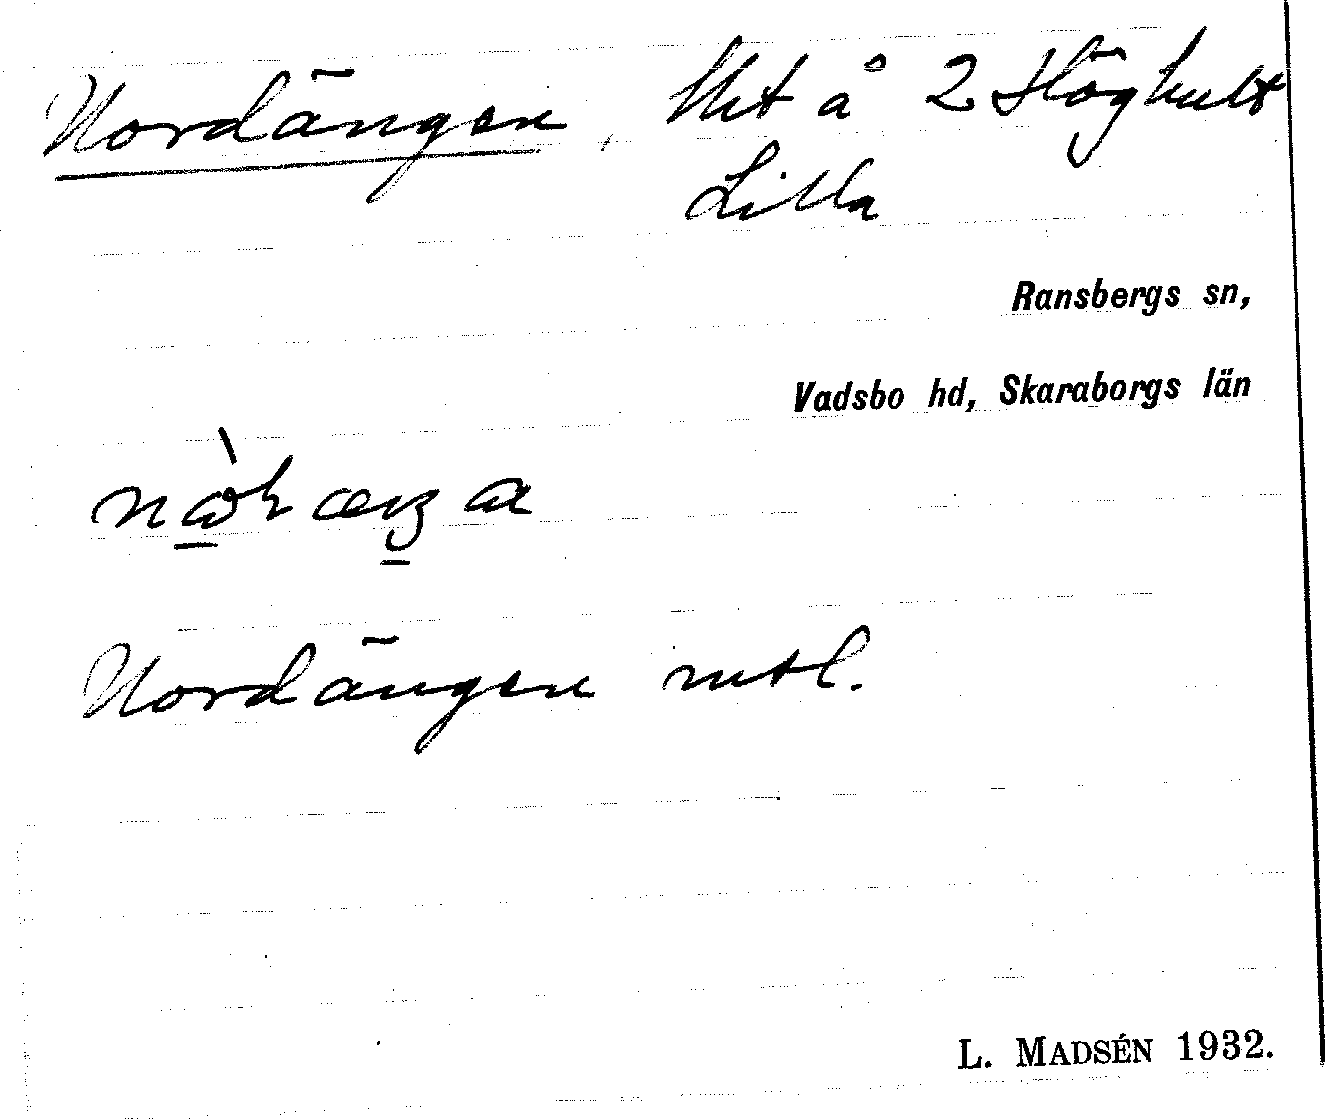 Nordängen, Hmt å 2 Höghult
Lilla
Ransbergs sn,
Vadsbo hd, Skaraborgs län
Nordängen mtl.
L. MADSÉN 1932.